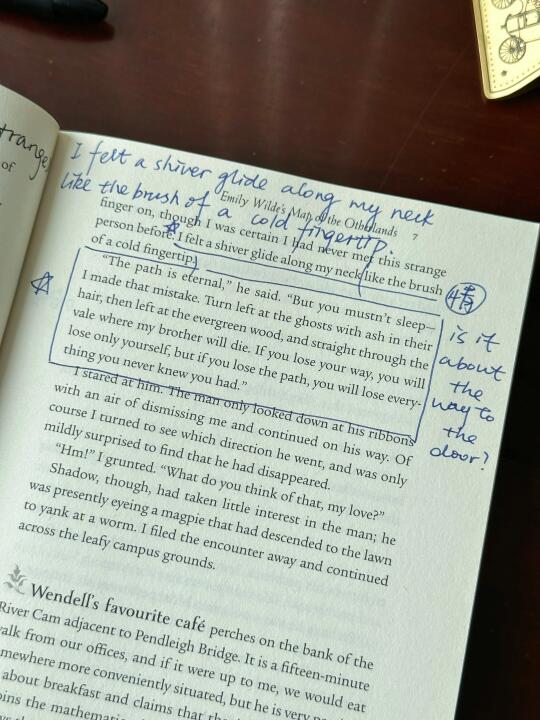 trange,
of
I felt a shiver glide along my neck
like the brush of a cold fingertip.
Emily Wilde's Map of the Otherlands 7
finger on, though I was certain I had never met this strange
person before. I felt a shiver glide along my neck like the brush
of a cold fingertip.
"The path is eternal," he said. "But you mustn't sleep—
I made that mistake. Turn left at the ghosts with ash in their
hair, then left at the evergreen wood, and straight through the
vale where my brother will die. If you lose your way, you will
lose only yourself, but if you lose the path, you will lose every-
thing you never knew you had."
is it
about
the
way to
the
door?
I stared at him. The man only looked down at his ribbons
with an air of dismissing me and continued on his way. Of
course I turned to see which direction he went, and was only
mildly surprised to find that he had disappeared.
"Hm!" I grunted. "What do you think of that, my love?"
Shadow, though, had taken little interest in the man; he
was presently eyeing a magpie that had descended to the lawn
to yank at a worm. I filed the encounter away and continued
across the leafy campus grounds.
Wendell's favourite café perches on the bank of the
River Cam adjacent to Pendleigh Bridge. It is a fifteen-minute
walk from our offices, and if it were up to me, we would eat
mewhere more conveniently situated, but he is very
about breakfast and claims that the
oins the mathema